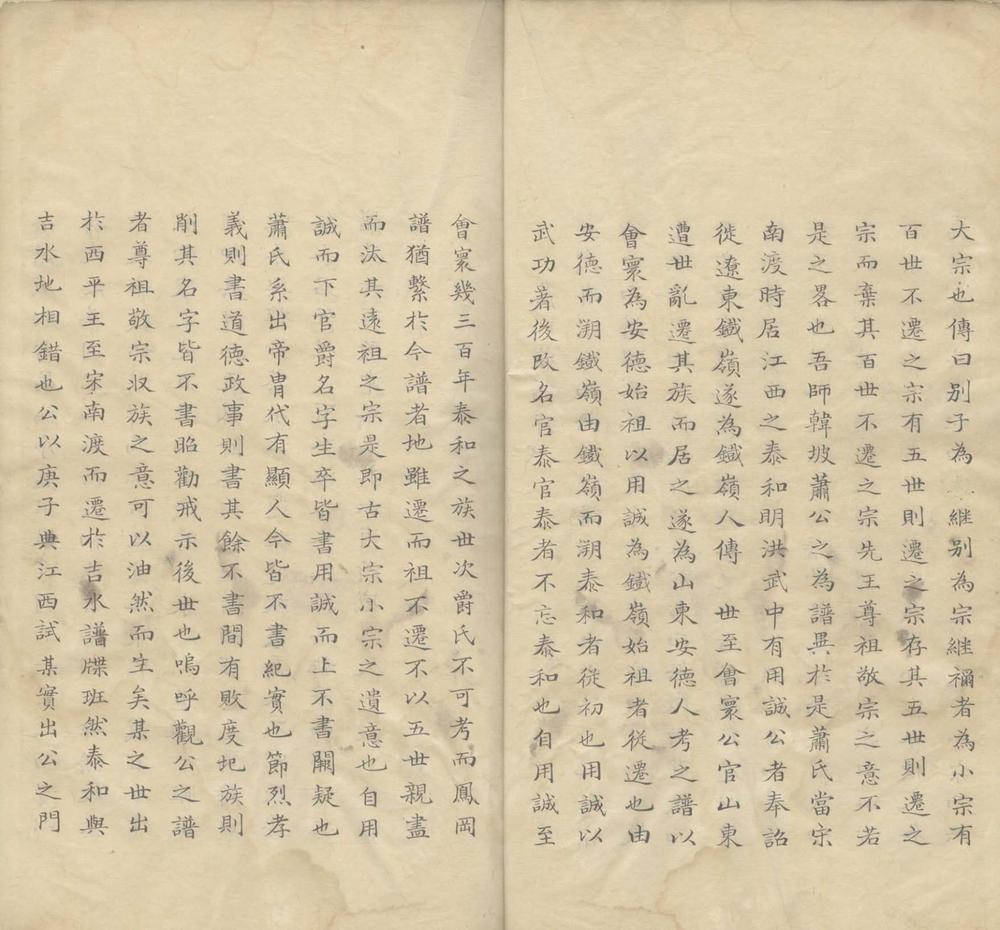 大宗也傳曰別子為 継别為宗継禰者為小宗有
百世不遷之宗有五世則遷之宗存其五世則遷之
宗而棄其百世不遷之宗先王尊祖敬宗之意不若
是之畧也吾師韓坡蕭公之為譜異於是蕭氏當宋
南渡時居江西之泰和明洪武中有用誠公者奉詔
徙遼東鐵嶺遂為鐵嶺人傳 世至會寰公官山東
遭世亂遷其族而居之遂為山東安德人考之譜以
會寰為安德始祖以用誠為鐵嶺始祖者從遷也由
安德而溯鐵嶺由鐵嶺而溯泰和者從初也用誠以
武功著後改名官泰官泰者不忘泰和也自用誠至
會寰幾三百年泰和之族世次爵氏不可考而鳳岡
譜猶繫於今譜者地雖遷而祖不遷不以五世親盡
而汰其遠祖之宗是即古大宗小宗之遺意也自用
誠而下官爵名字生卒皆書用誠而上不書闕疑也
蕭氏系出帝胄代有顯人今皆不書紀實也節烈孝
義則書道德政事則書其餘不書間有敗度圮族則
削其名字皆不書昭勸戒示後世也嗚呼觀公之譜
者尊祖敬宗収族之意可以油然而生矣某之世出
於西平王至宋南渡而遷於吉水譜牒班然泰和與
吉水地相錯也公以庚子典江西試某實出公之門